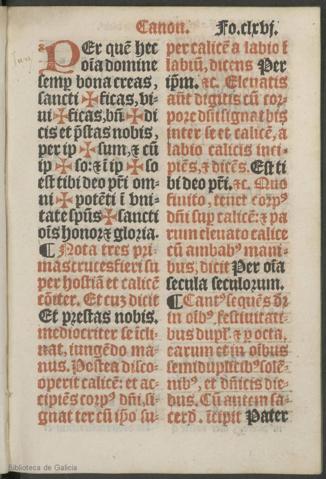 Canon. Fo.clxvj.
PEr quē hec
oīa domine
semp bona creas,
sancti ✠ ficas, vi-
ui ✠ ficas, bn̄ ✠ di
cis et p̄stas nobis,
per ip ✠ sum, ⁊ cū
ip ✠ so: ⁊ ī ip ✠ so
est tibi deo pr̄i om-
ni ✠ potēti ī vni-
tate spūs ✠ sancti
oīs honor ⁊ gloria.
¶ Nota tres pri
mas cruces fieri su
per hostiā et calicē
cōiter. Et cuz dicit
Et prestas nobis.
mediocriter se īcli-
nat, iungēdo ma-
nus. Postea disco-
operit calicē: et ac-
cipiēs corpꝰ dn̄i, si-
gnat ter cū ip̄o su-
per calicē a labio ī
labiū, dicens Per
ip̄m. ⁊c. Eleuatis
aūt digitis cū cor-
pore dn̄i signat bis
inter se et calicē, a
labio calicis inci-
piēs, ⁊ dicēs. Est ti
bi deo pr̄i. ⁊c. Quo
finito, tenet corpꝰ
dn̄i sup calicē: ⁊ pa
rum eleuato calice
cū ambabꝰ mani-
bus, dicit Per oīa
secula seculorum.
¶ Cantꝰ sequēs dr̄
in oībꝰ festiuitati-
bus dupl. ⁊ p octa.
earum et in oībus
semiduplicibꝰ solē-
nibꝰ, et dn̄icis die-
bus. Cū autem sa-
cerd. īcipit Pater
Biblioteca de Galicia